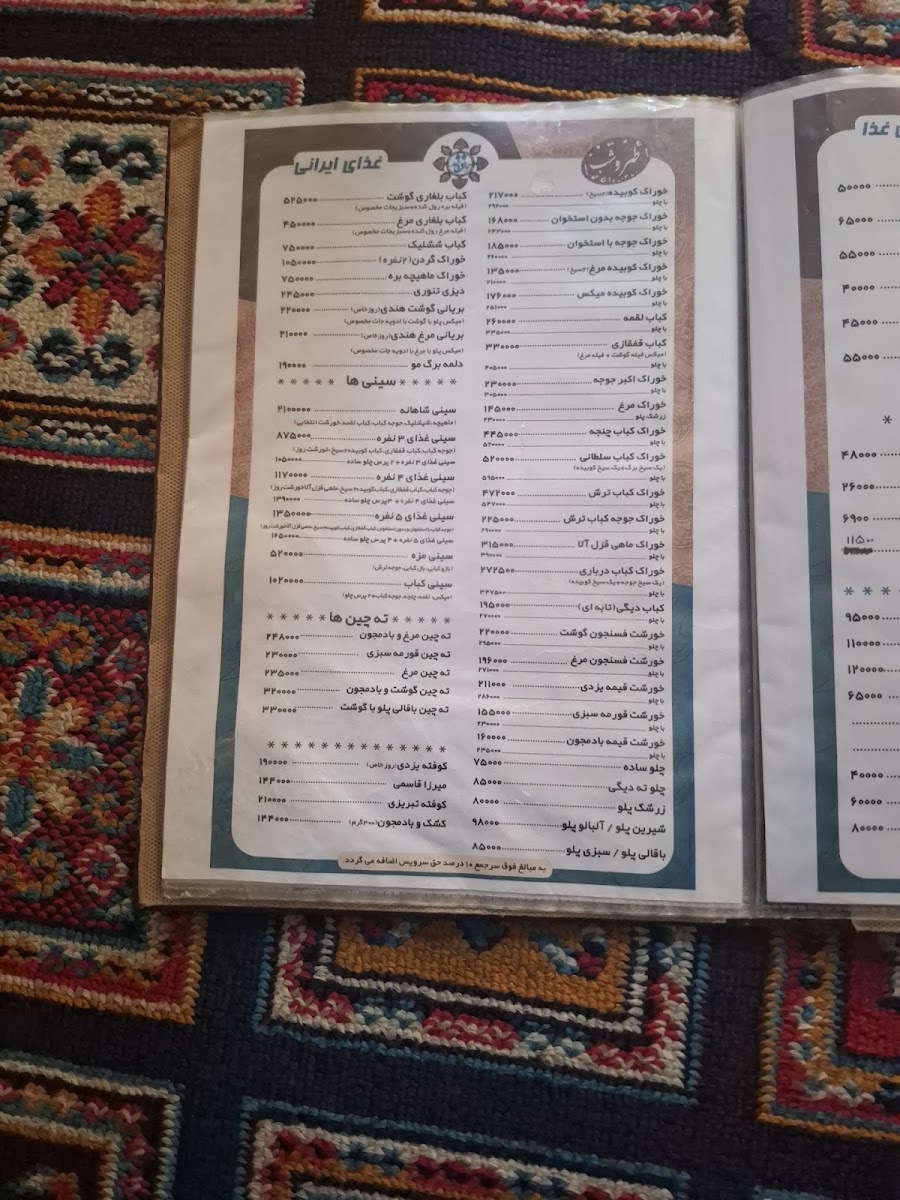 غذای ایرانی
خوراک کوبیده(۲سیخ) ۲۱۷۰۰۰
با چلو ۲۹۲۰۰۰
خوراک جوجه بدون استخوان ۱۶۸۰۰۰
با چلو ۲۴۳۰۰۰
خوراک جوجه با استخوان ۱۸۵۰۰۰
با چلو ۲۶۰۰۰۰
خوراک کوبیده مرغ(۲سیخ) ۱۳۵۰۰۰
با چلو ۲۱۰۰۰۰
خوراک کوبیده میکس ۱۷۶۰۰۰
با چلو ۲۵۱۰۰۰
کباب لقمه ۲۶۰۰۰۰
با چلو ۳۳۵۰۰۰
کباب قفقازی ۳۳۰۰۰۰
(میکس فیله گوشت + فیله مرغ)
با چلو ۴۰۵۰۰۰
خوراک اکبر جوجه ۲۳۰۰۰۰
با چلو ۳۰۵۰۰۰
خوراک مرغ ۱۴۵۰۰۰
زرشک پلو ۲۳۰۰۰۰
خوراک کباب چنجه ۴۴۵۰۰۰
با چلو ۵۲۰۰۰۰
خوراک کباب سلطانی ۵۲۰۰۰۰
(یک سیخ برگ+یک سیخ کوبیده)
با چلو ۵۹۵۰۰۰
خوراک کباب ترش ۴۷۲۰۰۰
با چلو ۵۴۷۰۰۰
خوراک جوجه کباب ترش ۲۲۵۰۰۰
با چلو
خوراک ماهی قزل آلا ۳۱۵۰۰۰
با چلو ۳۹۰۰۰۰
خوراک کباب درباری ۲۷۲۵۰۰
(یک سیخ جوجه+یک سیخ کوبیده)
با چلو ۳۴۷۵۰۰
کباب دیگی(تابه ای) ۱۹۵۰۰۰
با چلو ۲۷۰۰۰۰
خورشت فسنجون گوشت ۲۲۰۰۰۰
با چلو ۲۹۵۰۰۰
خورشت فسنجون مرغ ۱۹۶۰۰۰
با چلو ۲۷۱۰۰۰
خورشت قیمه یزدی ۲۱۱۰۰۰
با چلو ۲۸۶۰۰۰
خورشت قورمه سبزی ۱۵۵۰۰۰
با چلو ۲۳۰۰۰۰
خورشت قیمه بادمجون ۱۶۰۰۰۰
با چلو ۲۳۵۰۰۰
چلو ساده ۷۵۰۰۰
چلو ته دیگی ۸۵۰۰۰
زرشک پلو ۸۰۰۰۰
شیرین پلو / آلبالو پلو ۹۸۰۰۰
باقالی پلو / سبزی پلو ۸۵۰۰۰
کباب بلغاری گوشت ۵۲۵۰۰۰
(فیله بره رول شده+سبزیجات مخصوص)
کباب بلغاری مرغ ۴۵۰۰۰۰
(فیله مرغ رول شده+سبزیجات مخصوص)
کباب ششلیک ۷۵۰۰۰۰
خوراک گردن(۲نفره) ۱۰۵۰۰۰۰
خوراک ماهیچه بره ۷۵۰۰۰۰
دیزی تنوری ۲۴۵۰۰۰
بریانی گوشت هندی(روز خاص) ۲۲۰۰۰۰
(میکس پلو با گوشت با ادویه جات مخصوص)
بریانی مرغ هندی(روز خاص) ۲۱۰۰۰۰
(میکس پلو با مرغ با ادویه جات مخصوص)
دلمه برگ مو ۱۹۰۰۰۰
* * * * * سینی ها * * * * *
سینی شاهانه ۲۱۰۰۰۰۰
(ماهیچه،شیشلیک،جوجه کباب،کباب لقمه،خورشت انتخابی)
سینی غذای ۳ نفره ۸۷۵۰۰۰
(جوجه کباب،کباب قفقازی،کباب کوبیده۲سیخ،خورشت روز)
سینی غذای ۳ نفره + ۲ پرس چلو ساده ۱۰۵۰۰۰۰
سینی غذای ۴ نفره ۱۱۷۰۰۰۰
(جوجه کباب،کباب قفقازی،کباب کوبیده۲سیخ،ماهی قزل آلا،خورشت روز)
سینی غذای ۴ نفره+ ۳پرس چلو ساده ۱۳۹۰۰۰۰
سینی غذای ۵ نفره ۱۳۵۰۰۰۰
سینی غذای ۵ نفره + ۴ پرس چلو ساده ۱۶۵۰۰۰۰
سینی مزه ۵۲۰۰۰۰
(بازو کبابی،بال کبابی،جوجه ترش)
سینی کباب ۱۰۲۰۰۰۰
(میکس، لقمه،چنجه، جوجه کباب+۲ پرس چلو)
* * * * * ته چین ها * * * * *
ته چین مرغ و بادمجون ۲۴۸۰۰۰
ته چین قورمه سبزی ۲۳۰۰۰۰
ته چین مرغ ۲۳۵۰۰۰
ته چین گوشت و بادمجون ۳۲۰۰۰۰
ته چین باقالی پلو با گوشت ۳۳۰۰۰۰
* * * * * * * * * * * * *
کوفته یزدی(روز خاص) ۱۹۰۰۰۰
میرزا قاسمی ۱۴۴۰۰۰
کوفته تبریزی ۲۱۰۰۰۰
کشک و بادمجون(۳۰۰گرم) ۱۴۴۰۰۰
به مبالغ فوق سرجمع ۱۰ درصد حق سرویس اضافه می گردد
غذا
۵۰۰۰۰
۶۵۰۰۰
۵۵۰۰۰
۴۰۰۰۰
۴۵۰۰۰
۵۵۰۰۰
*
۴۸۰۰۰
۲۶۰۰۰
۶۹۰۰
۱۱۵۰۰
* * * *
۹۵۰۰۰
۱۱۰۰۰۰
۱۲۰۰۰۰
۶۵۰۰۰
۴۰۰۰۰
۶۰۰۰۰
۸۰۰۰۰